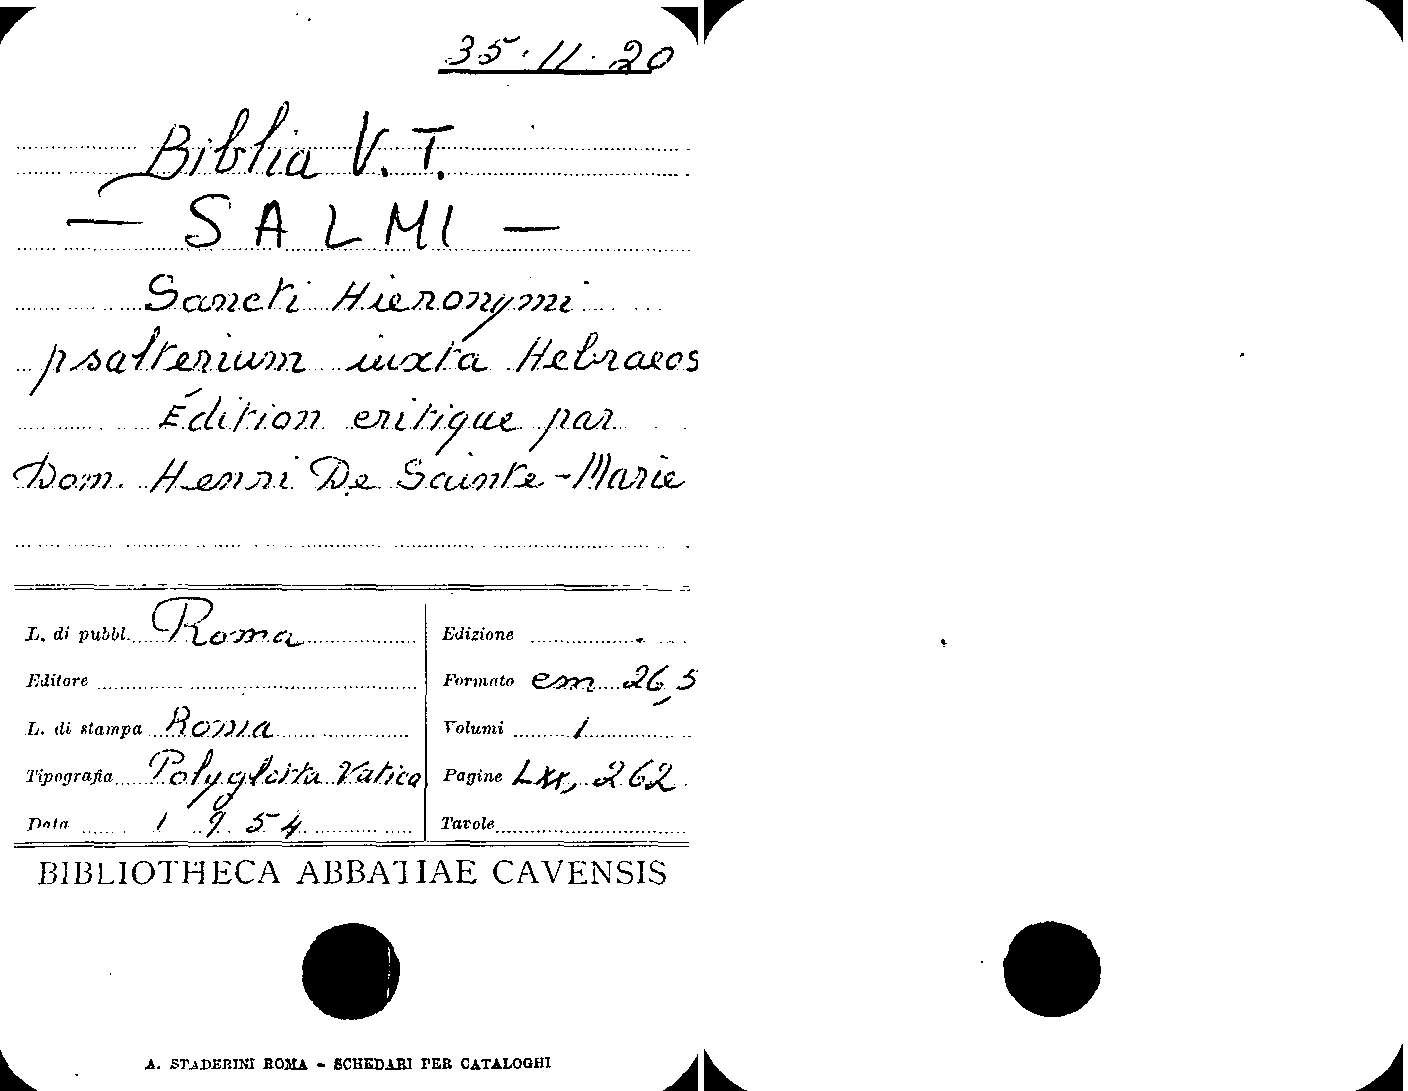 35.11.20
Biblia V.T.
— SALMI —
Sancti Hieronymi
psalterium iuxta Hebraeos
Édition critique par
Dom. Henri De Sainte-Marie
L. di pubbl. Roma
Edizione
Editore
Formato cm 26,5
L. di stampa Roma
Volumi 1
Tipografia Polyglotta Vatica
Pagine Lxx, 262
Data 1954
Tavole
BIBLIOTHECA ABBATIAE CAVENSIS
A. STADERINI ROMA - SCHEDARI PER CATALOGHI